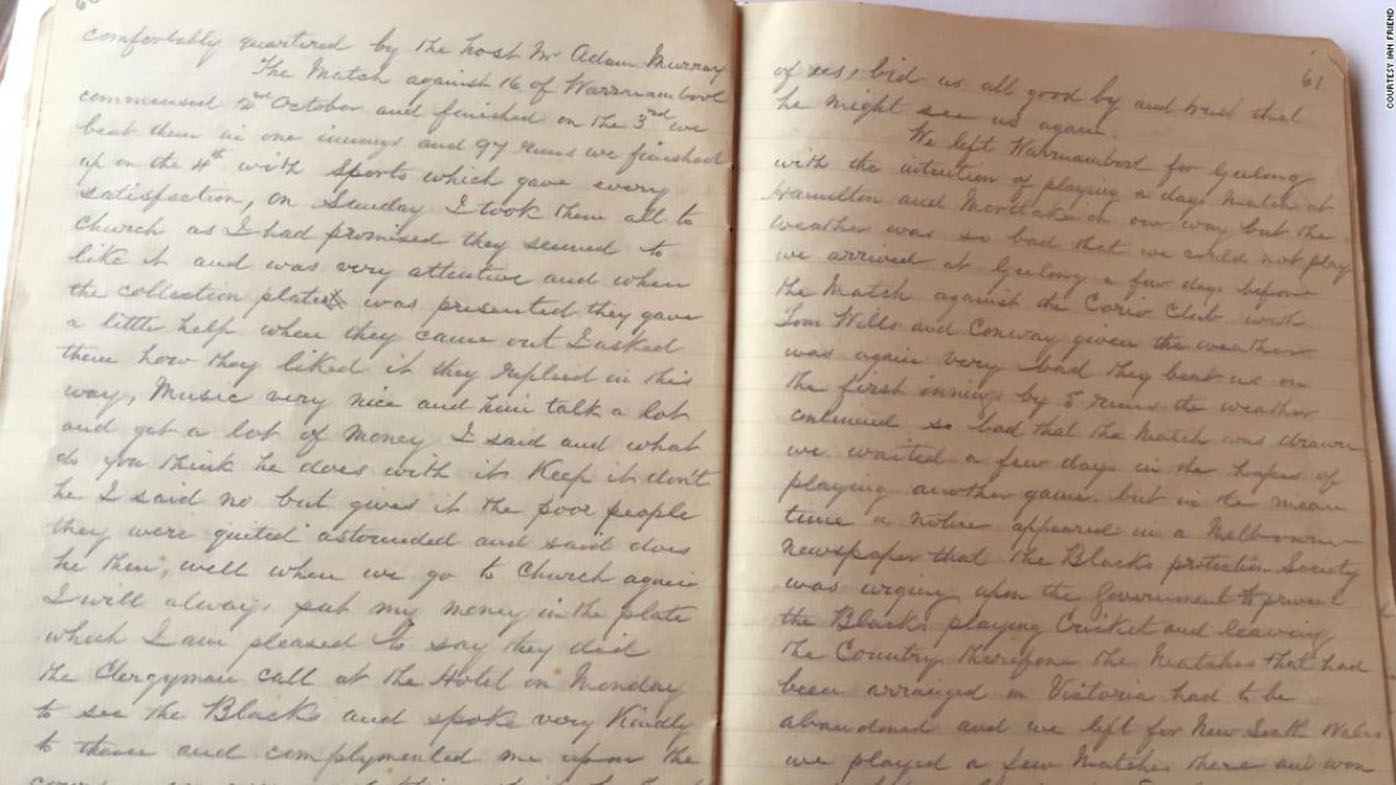 60
comfortably quartered by the host Mr Adam Murray
The Match against 16 of Warrnambool
commensed 2nd October and finished on the 3rd we
beat them in one innings and 97 runs we finished
up on the 4th with sports which gave every
satisfaction, on Sunday I took them all to
Church as I had promised they seemed to
like it and was very attentive and when
the collection plate was presented they gave
a little help when they came out I asked
them how they liked it they replied in this
way, Music very nice and him talk a lot
and get a lot of money I said and what
do you think he does with it Keep it don't
he I said no but gives it the poor people
they were quited astounded and said does
he then, well when we go to Church again
I will always put my money in the plate
which I am pleased to say they did
the Clergyman call at the Hotel on Monday
to see the Blacks and spoke very Kindly
to them and complymented me upon the
61
of us, bid us all good by and trust that
he might see us again.
We left Warrnambool for Geelong
with the intention of playing a days Match at
Hamilton and Mortlake on our way but the
weather was so bad that we could not play
we arrived at Geelong a few days before
the Match against the Corio Club with
Tom Wills and Conway given the weather
was again very bad they beat us on
the first innings by 5 runs the weather
continued so bad that the Match was drawn
we waited a few days in the hopes of
playing another game. but in the mean
time a notice appeared in a Melbourne
Newspaper that the Blacks protection Society
was urging upon the Government to prevent
the Blacks playing Cricket and leaving
the Country, therefore the Matches that had
been arraiged in Victoria had to be
abandoned and we left for New South Wales
we played a few Matches there and won
COURTESY IAN FRIEND